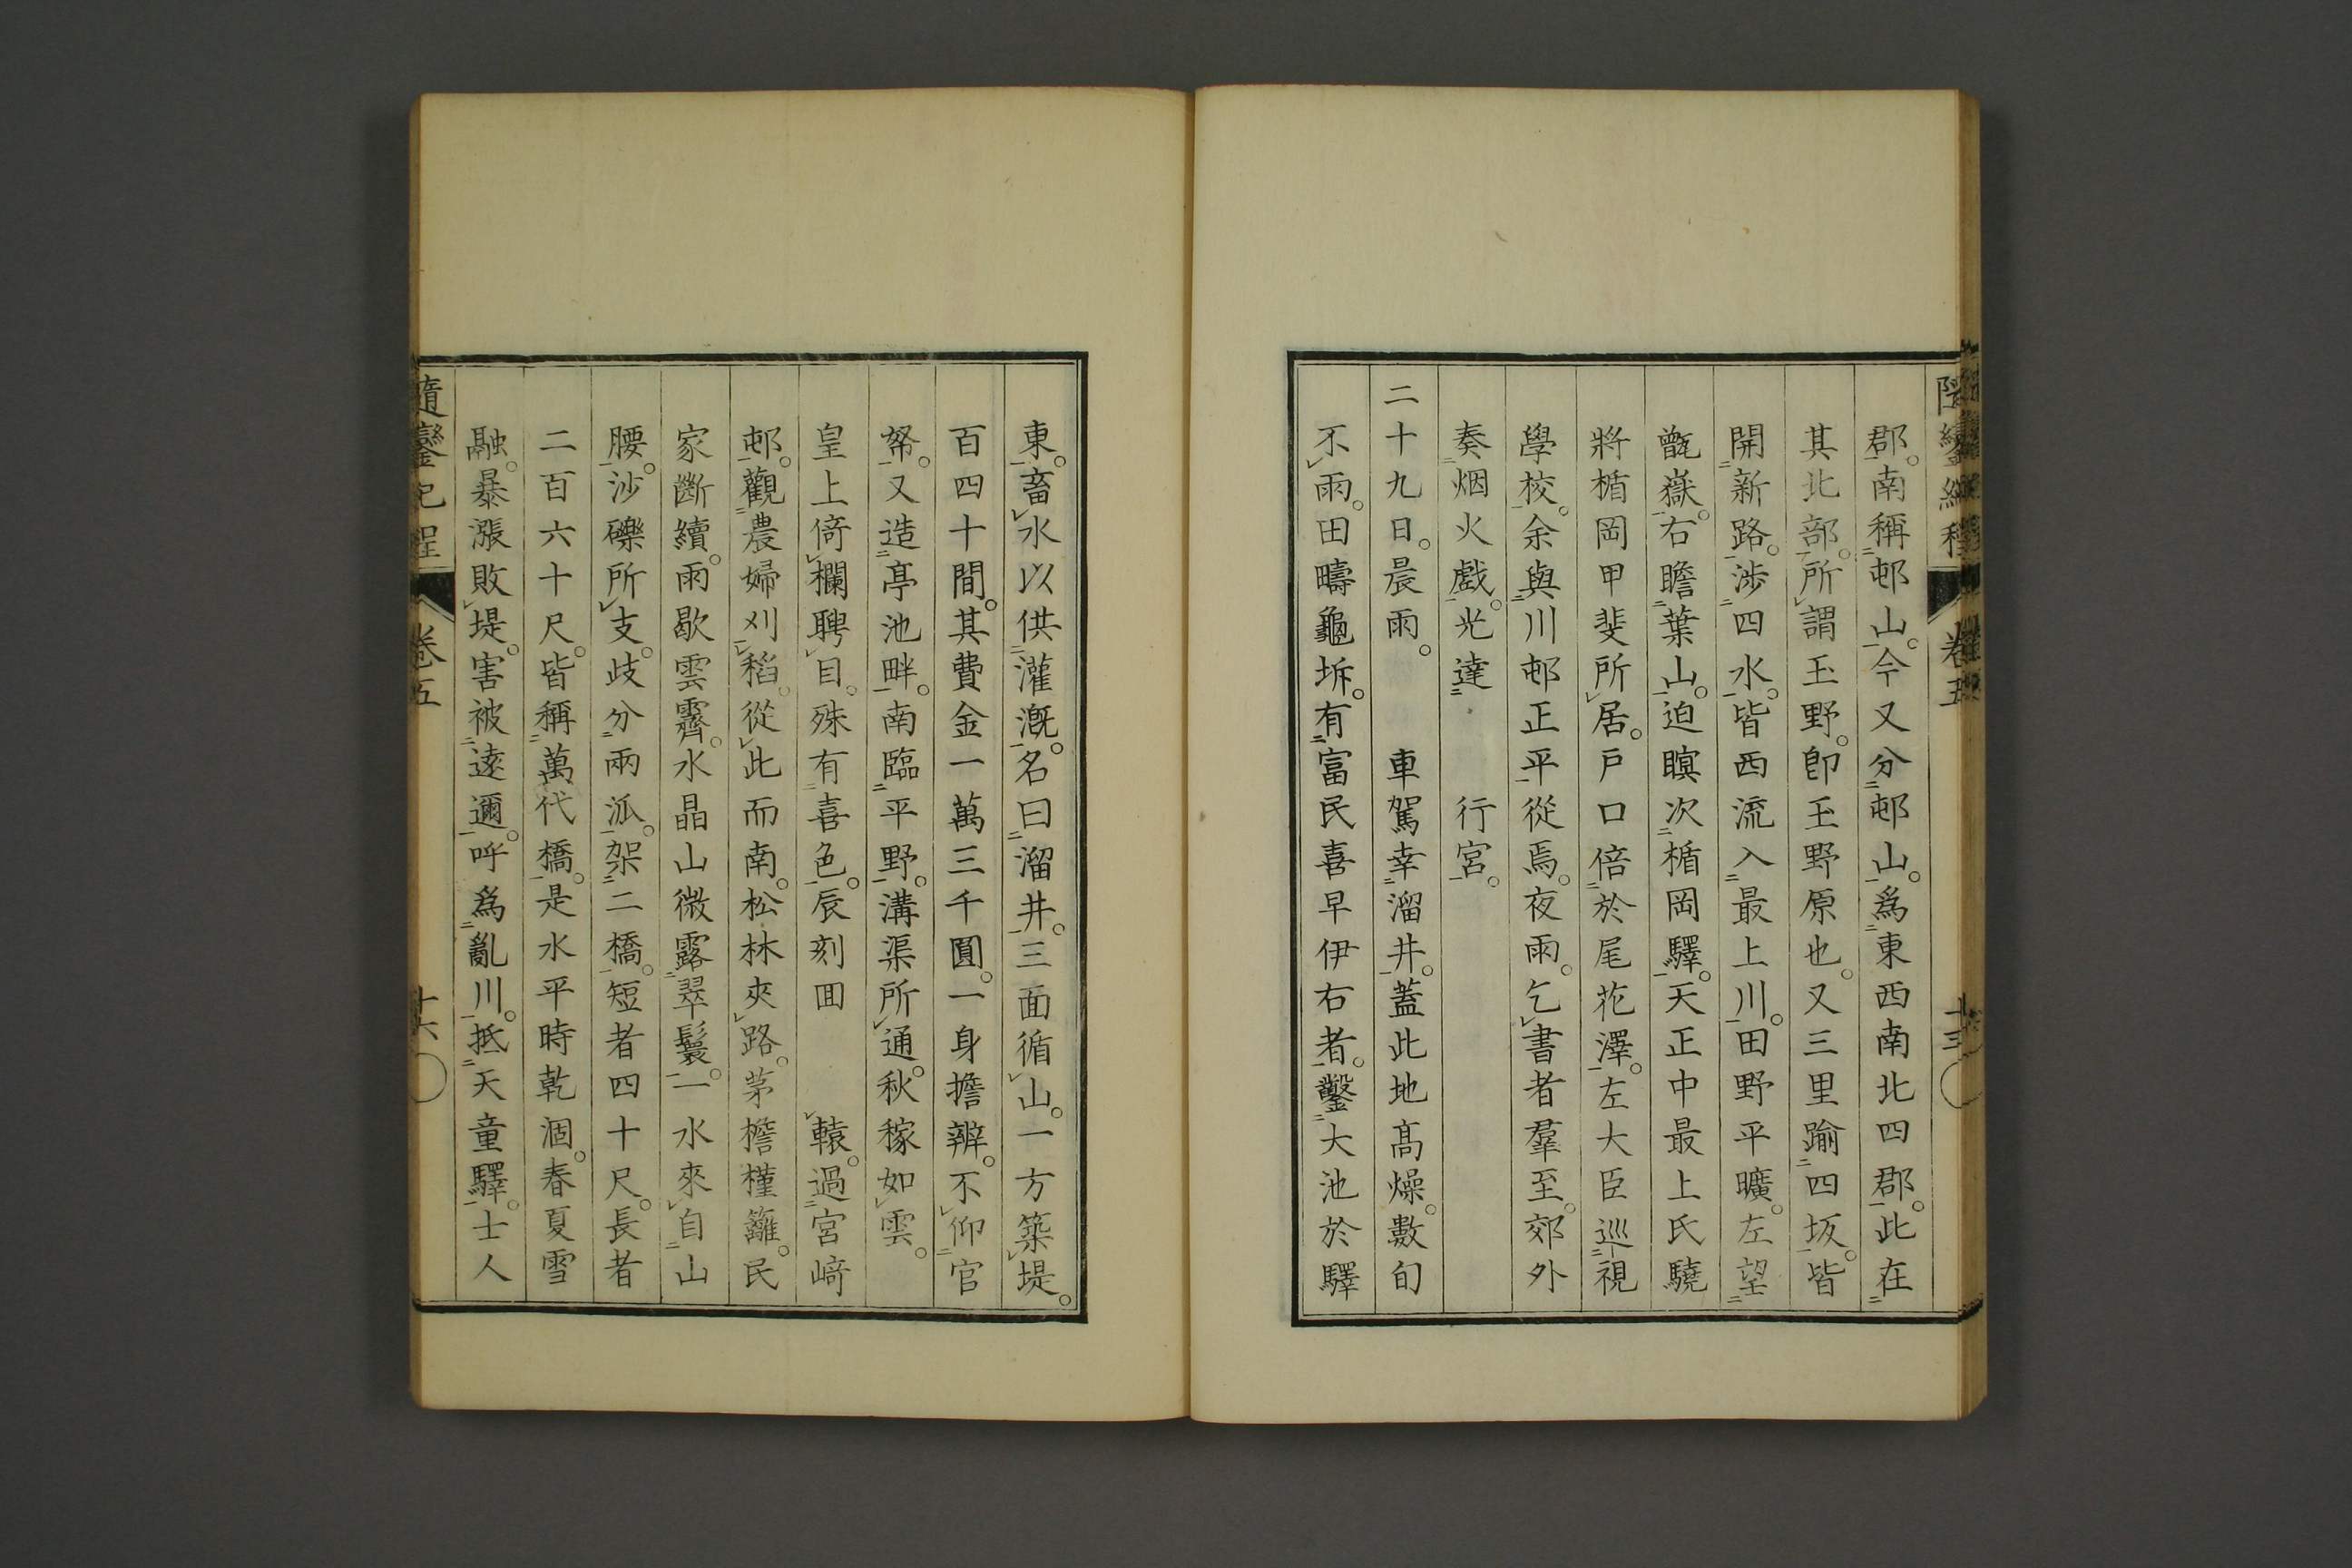 郡。南稱邨山。今又分邨山。爲東西南北四郡。此在
其北部。所謂玉野。卽玉野原也。又三里踰四坂。皆
開新路。涉四水。皆西流入最上川。田野平曠。左望
甑嶽。右瞻葉山。迫暝次楯岡驛。天正中最上氏驍
將楯岡甲斐所居。戶口倍於尾花澤。左大臣巡視
學校。余與川邨正平從焉。夜雨。乞書者羣至。郊外
奏烟火戲。光達　行宮。
二十九日。晨雨。　車駕幸溜井。蓋此地高燥。數旬
不雨。田疇龜坼。有富民喜早伊右者。鑿大池於驛
東。畜水以供灌漑。名曰溜井。三面循山。一方築堤。
百四十間。其費金一萬三千圓。一身擔辨。不仰官
帑。又造亭池畔。南臨平野。溝渠所通。秋稼如雲。
皇上倚欄聘目。殊有喜色。辰刻囬　轅。過宮﨑
邨。觀農婦刈稻。從此而南。松林夾路。茅檐槿籬。民
家斷續。雨歇雲霽。水晶山微露翠鬟。一水來自山
腰。沙礫所支。歧分兩泒。架二橋。短者四十尺。長者
二百六十尺。皆稱萬代橋。是水平時乾涸。春夏雪
融。暴漲敗堤。害被遠邇。呼爲亂川。抵天童驛。士人
隨鑾紀程　卷五　十六